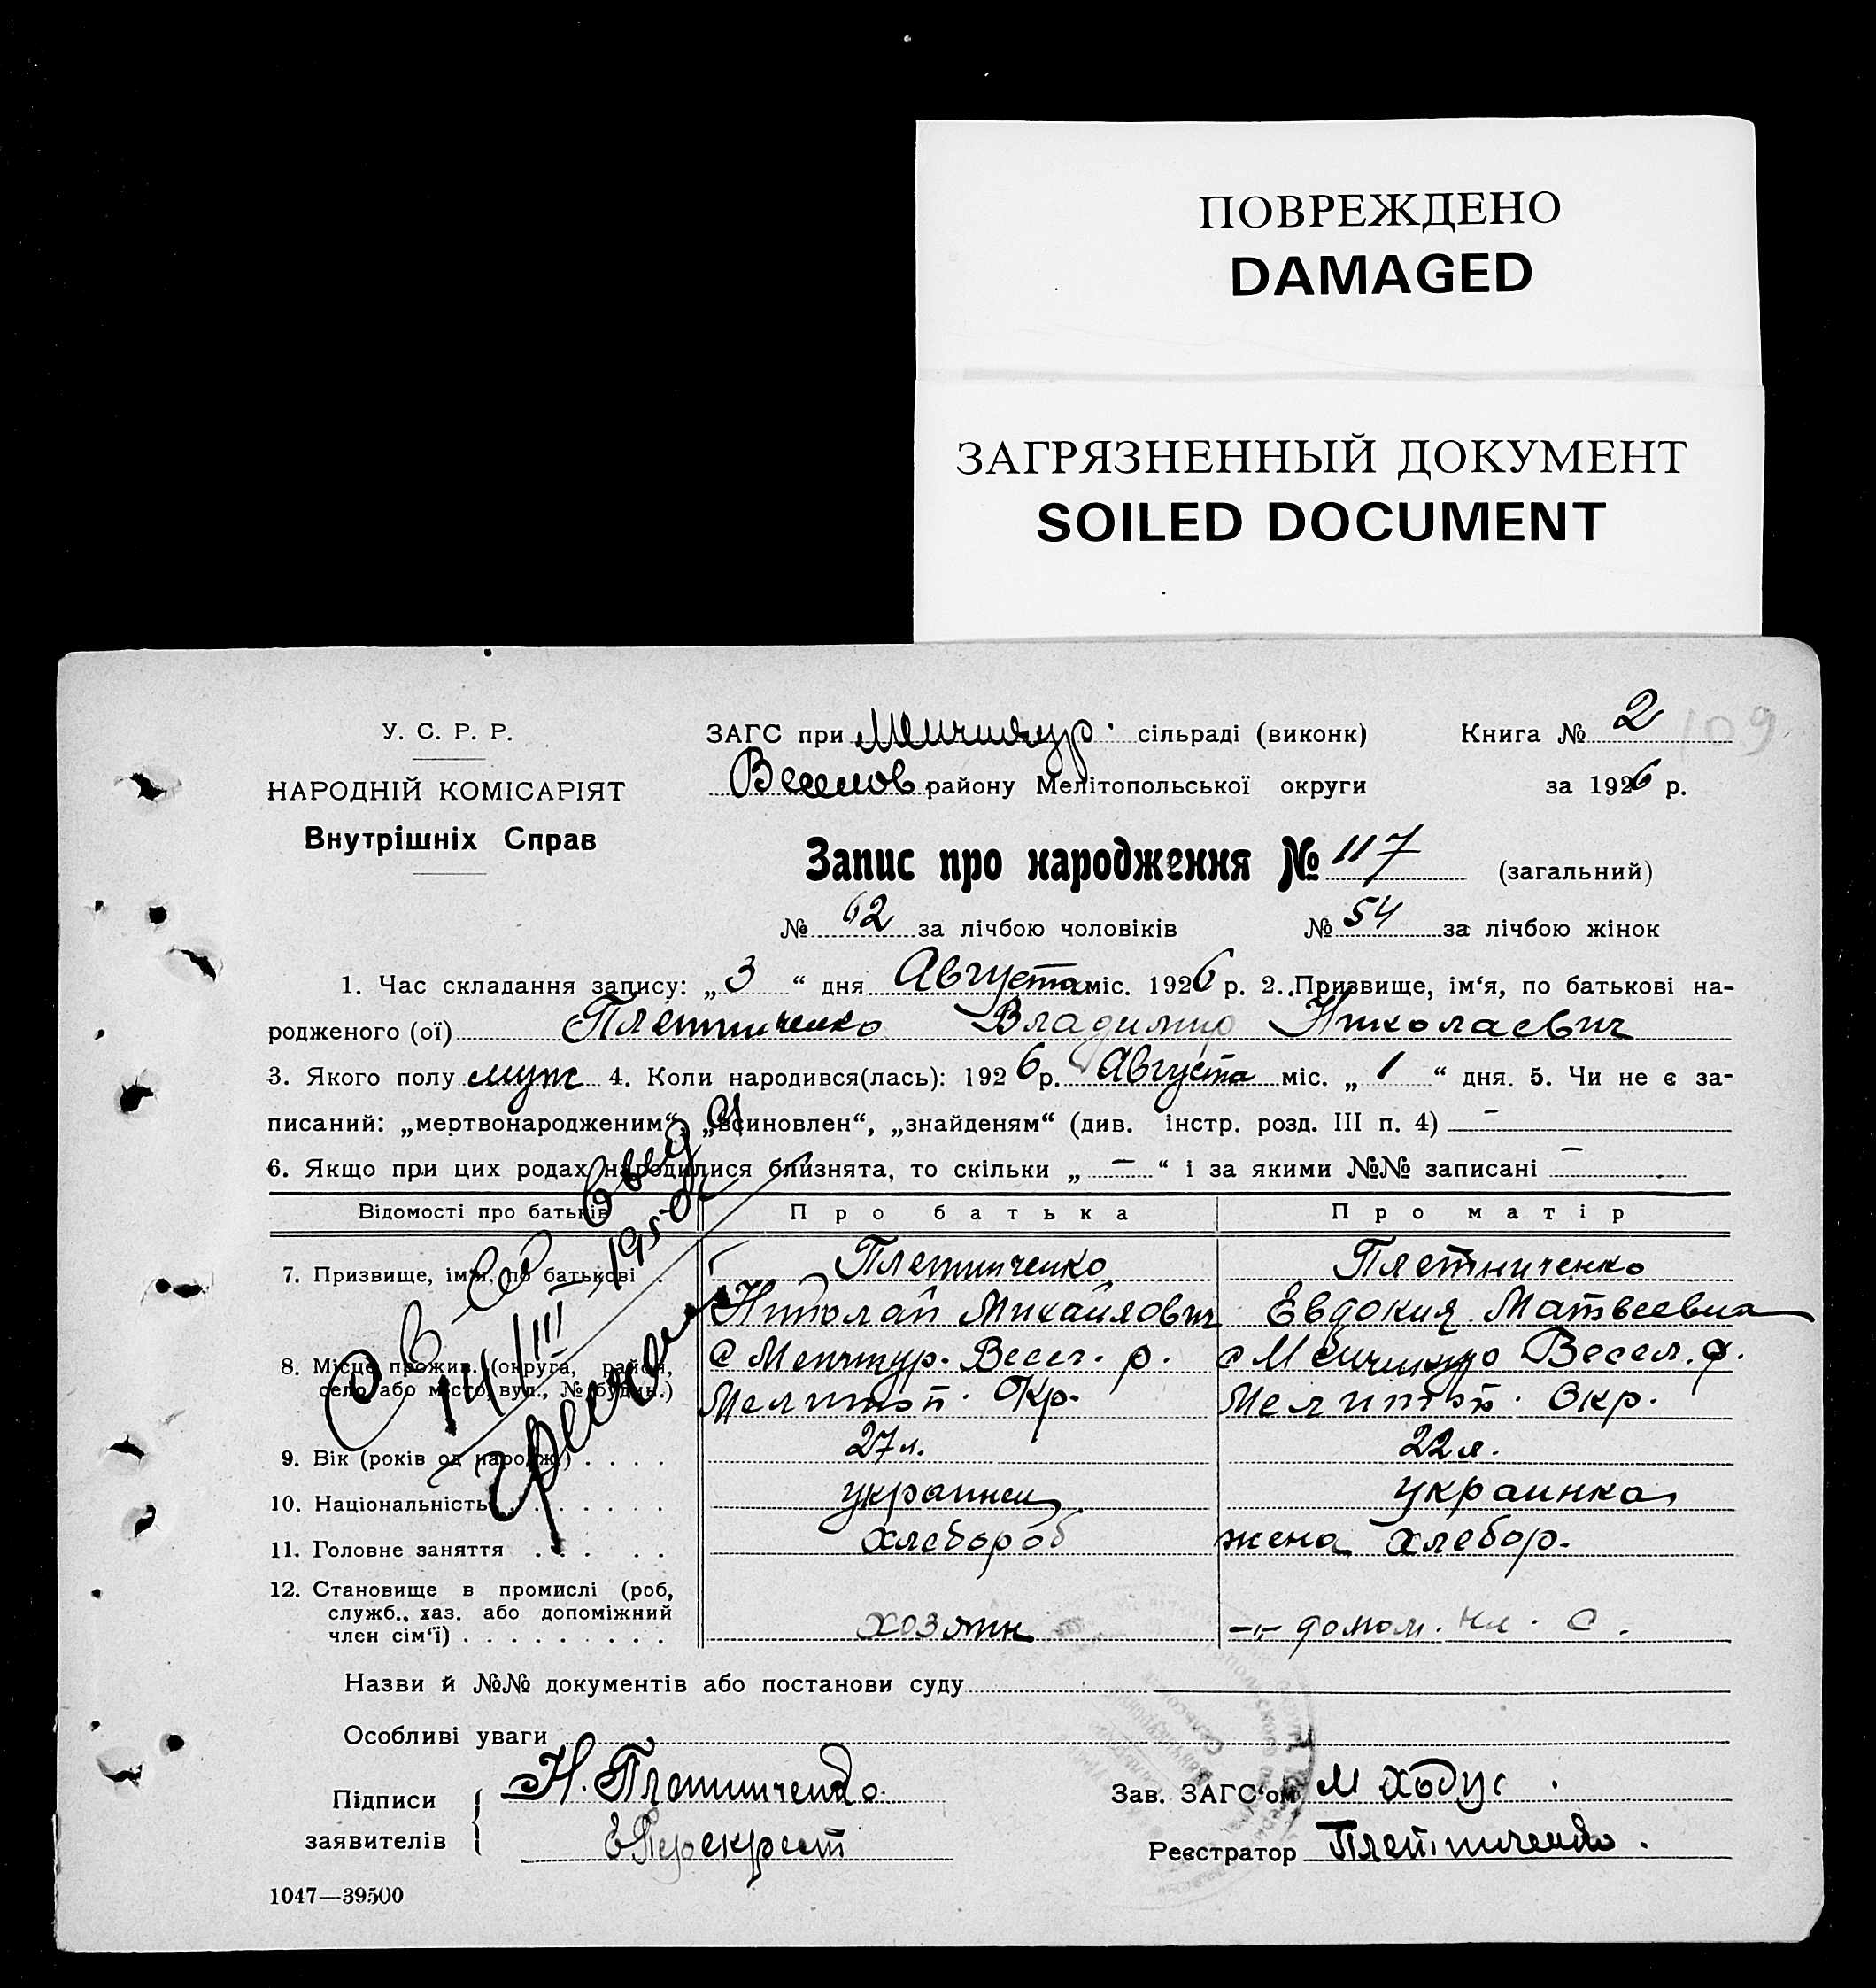 ПОВРЕЖДЕНО
DAMAGED
ЗАГРЯЗНЕННЫЙ ДОКУМЕНТ
SOILED DOCUMENT
109
У. С. Р. Р.
НАРОДНІЙ КОМІСАРІЯТ
Внутрішніх Справ
ЗАГС при Менчикур. сільраді (виконк) Книга № 2
Веселов району Мелітопольської округи за 1926 р.
Запис про народження № 117 (загальний)
№ 62 за лічбою чоловіків № 54 за лічбою жінок
1. Час складання запису: „3“ дня Августа міс. 1926 р. 2. Призвище, ім‘я, по батькові на-
родженого (ої) Плетниченко Владимир Николаевич
3. Якого полу муж 4. Коли народився(лась): 1926 р. Августа міс. „1“ дня. 5. Чи не є за-
писаний: „мертвонародженим“, „всиновлен“, „знайденям“ (див. інстр. розд. III п. 4) —
6. Якщо при цих родах народилися близнята, то скільки „—“ і за якими №№ записані —
Відомості про батьків Про батька Про матір
7. Призвище, ім‘я, по батькові . Плетниченко Плетниченко
Николай Михайлович Евдокия Матвеевна
8. Місце прожив. (округа, район, с Менчикур. Весел. р. с Менчикур Весел. р.
село або місто, вул., № будин.) Мелитоп. Окр. Мелитоп. Окр.
9. Вік (років од народж.) . . . . 27 л. 22 л.
10. Національність . . . . . . . украинец украинка
11. Головне заняття . . . . . хлебороб жена хлебор.
12. Становище в промислі (роб,
служб., хаз. або допоміжний
член сім‘ї) . . . . . . . . . хозяин -„- домом. чл. с.
14/III 1950
Назви й №№ документів або постанови суду
Особливі уваги
Підписи заявителів Н. Плетниченко Зав. ЗАГС‘ом М Ходус
Е Перекрест Реєстратор Плетниченко.
1047—39500